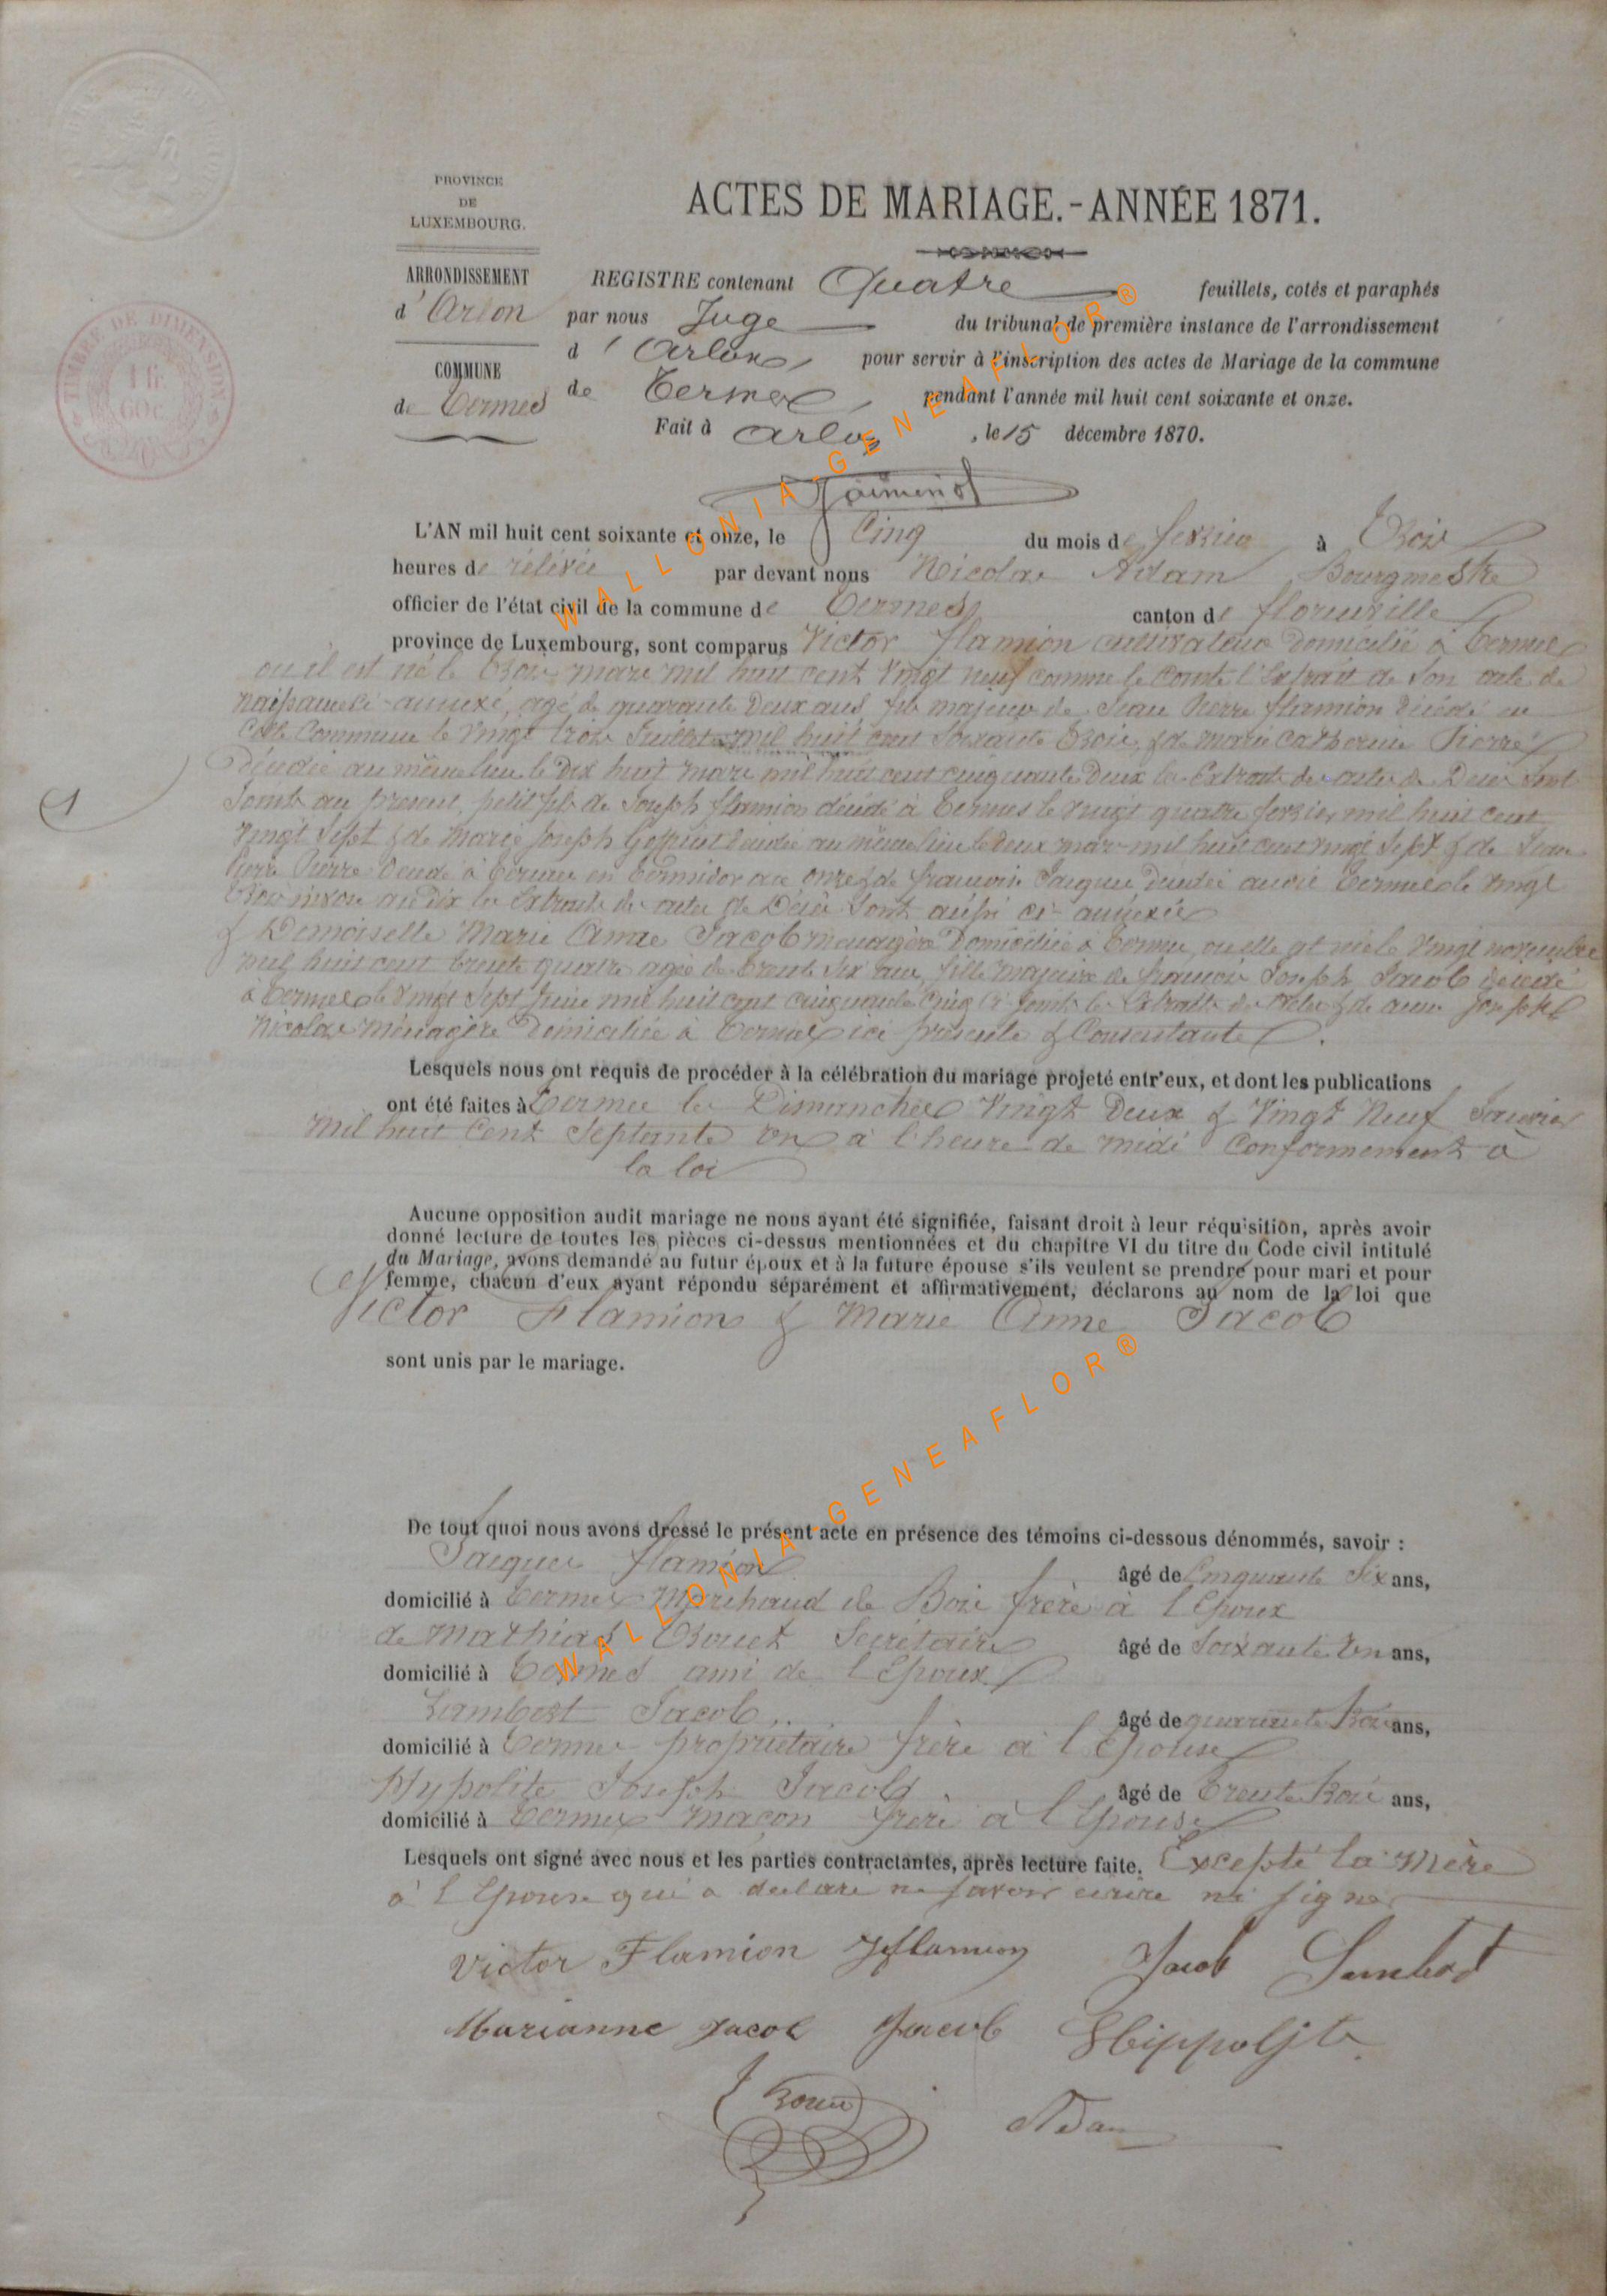 PROVINCE
DE
LUXEMBOURG.
ACTES DE MARIAGE.-ANNÉE 1871.
ARRONDISSEMENT
d'Arlon
COMMUNE
de Termes
TIMBRE DE DIMENSION
1 fr.
60 c.
REGISTRE contenant Quatre feuillets, cotés et paraphés
par nous Juge du tribunal de première instance de l'arrondissement
d'Arlon, pour servir à l'inscription des actes de Mariage de la commune
de Termes, pendant l'année mil huit cent soixante et onze.
Fait à Arlon, le 15 décembre 1870.
1
L'AN mil huit cent soixante et onze, le Cinq du mois de fevrier à Trois
heures de rélévée par devant nous Nicolas Adam Bourgmestre
officier de l'état civil de la commune de Termes canton de florenville
province de Luxembourg, sont comparus Victor flamion cultivateur domicilié à Termes
ou il est né le Trois mars mil huit cent vingt neuf comme le Conste l'Extrait de son acte de
naissance ci-annexé, agé de quarante deux ans fils majeur de Jean Pierre flamion décédé en
cette Commune le vingt trois Juillet mil huit cent soixante Trois, & de marie catherine Pierre
décédée au même lieu le dix huit mars mil huit cent cinquante deux les Extraits des actes de Décès sont
Joints au present, petit fils de Joseph flamion décédé à Termes le vingt quatre fevrier mil huit cent
vingt sept & de Marie Joseph décédée au même lieu le deux mars mil huit cent vingt sept & de Jean
Pierre Pierre décédé à Termes en Termidor an onze & de françoise Jacques décédée audit Termes le vingt
Trois nivose an dix les Extraits des actes de Décès sont aussi ci-annexés
& Demoiselle Marie Anne Jacob menagère Domiciliée à Termes, ou elle est née le vingt novembre
mil huit cent trente quatre agée de trente six ans, fille majeure de françois Joseph Jacob décédé
à Termes le vingt sept Juin mil huit cent cinquante cinq ci Joint les Extraits des actes & de anne Joseph
Nicolas ménagère Domiciliée à Termes ici présente & Consentante.
Lesquels nous ont requis de procéder à la célébration du mariage projeté entr'eux, et dont les publications
ont été faites à Termes les Dimanches Vingt Deux & Vingt Neuf Janvier
mil huit Cent Septante un à l'heure de midi Conformement à
la loi
Aucune opposition audit mariage ne nous ayant été signifiée, faisant droit à leur réquisition, après avoir
donné lecture de toutes les pièces ci-dessus mentionnées et du chapitre VI du titre du Code civil intitulé
du Mariage, avons demandé au futur époux et à la future épouse s'ils veulent se prendre pour mari et pour
femme, chacun d'eux ayant répondu séparément et affirmativement, déclarons au nom de la loi que
Victor Flamion & Marie Anne Jacob
sont unis par le mariage.
De tout quoi nous avons dressé le présent acte en présence des témoins ci-dessous dénommés, savoir :
Jacques flamion âgé de Cinquante Six ans,
domicilié à Termes Marchand de Bois frère à l'Epoux
de Mathias Secrétaire âgé de Soixante Un ans,
domicilié à Termes ami de l'Epoux
Lambert Jacob âgé de quarante trois ans,
domicilié à Termes propriétaire frère à l'Epouse
Hypolite Joseph Jacob âgé de Trente trois ans,
domicilié à Termes maçon frère à l'Epouse
Lesquels ont signé avec nous et les parties contractantes, après lecture faite. Excepté la mère
à l'Epouse qui a declaré ne savoir écrire ni signer
Victor Flamion Jflamion Jacob Lambert
Marianne Jacob Jacob Hippolyte
Adam
WALLONIA-GENEAFLOR®
WALLONIA-GENEAFLOR®